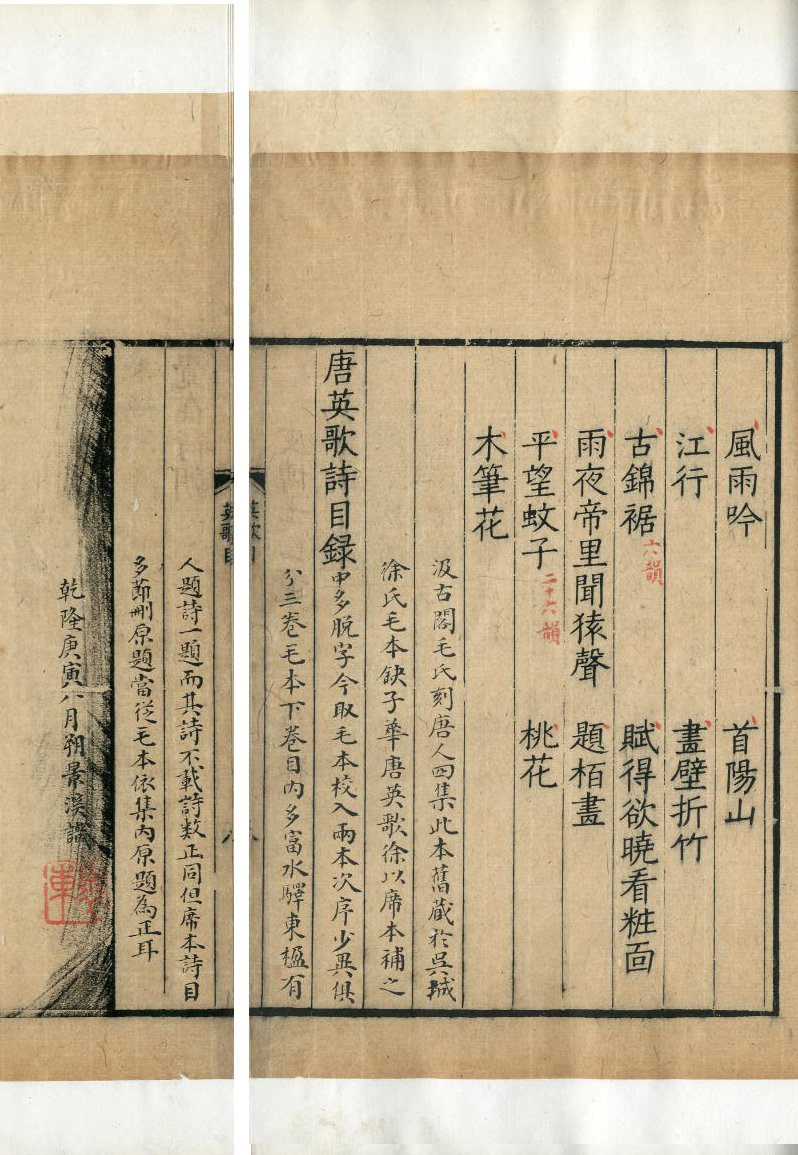 風雨吟　首陽山
江行　畫壁折竹
古錦裾六韻　賦得欲曉看粧面
雨夜帝里聞猿聲　題栢畫
平望蚊子二十六韻　桃花
木筆花
汲古閣毛氏刻唐人四集此本舊藏於吳城
徐氏毛本缺子華唐英歌徐以席本補之
唐英歌詩目録中多脫字今取毛本校入兩本次序少異俱
分三卷毛本下卷目內多富水驛東楹有
英歌目
人題詩一題而其詩不載詩数正同但席本詩目
多節刪原題當從毛本依集內原題為正耳
乾隆庚寅八月朔景溪識